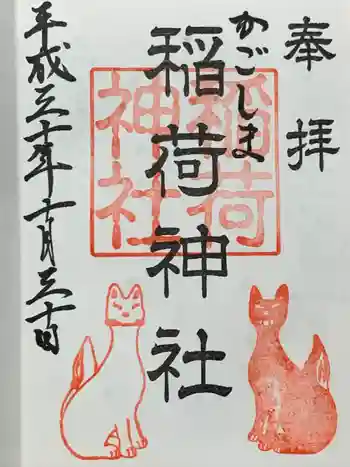 奉拝
かごしま
稲荷神社
稲荷神社
平成三十年十一月三十日